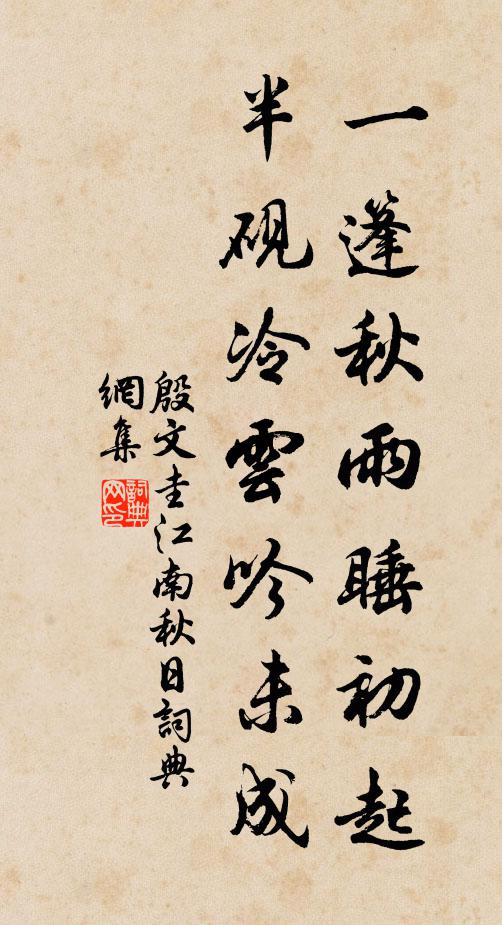 一蓬秋雨睡初起
半硯冷雲吟未成
殷文圭江南秋日詞典
網集
詞典網印